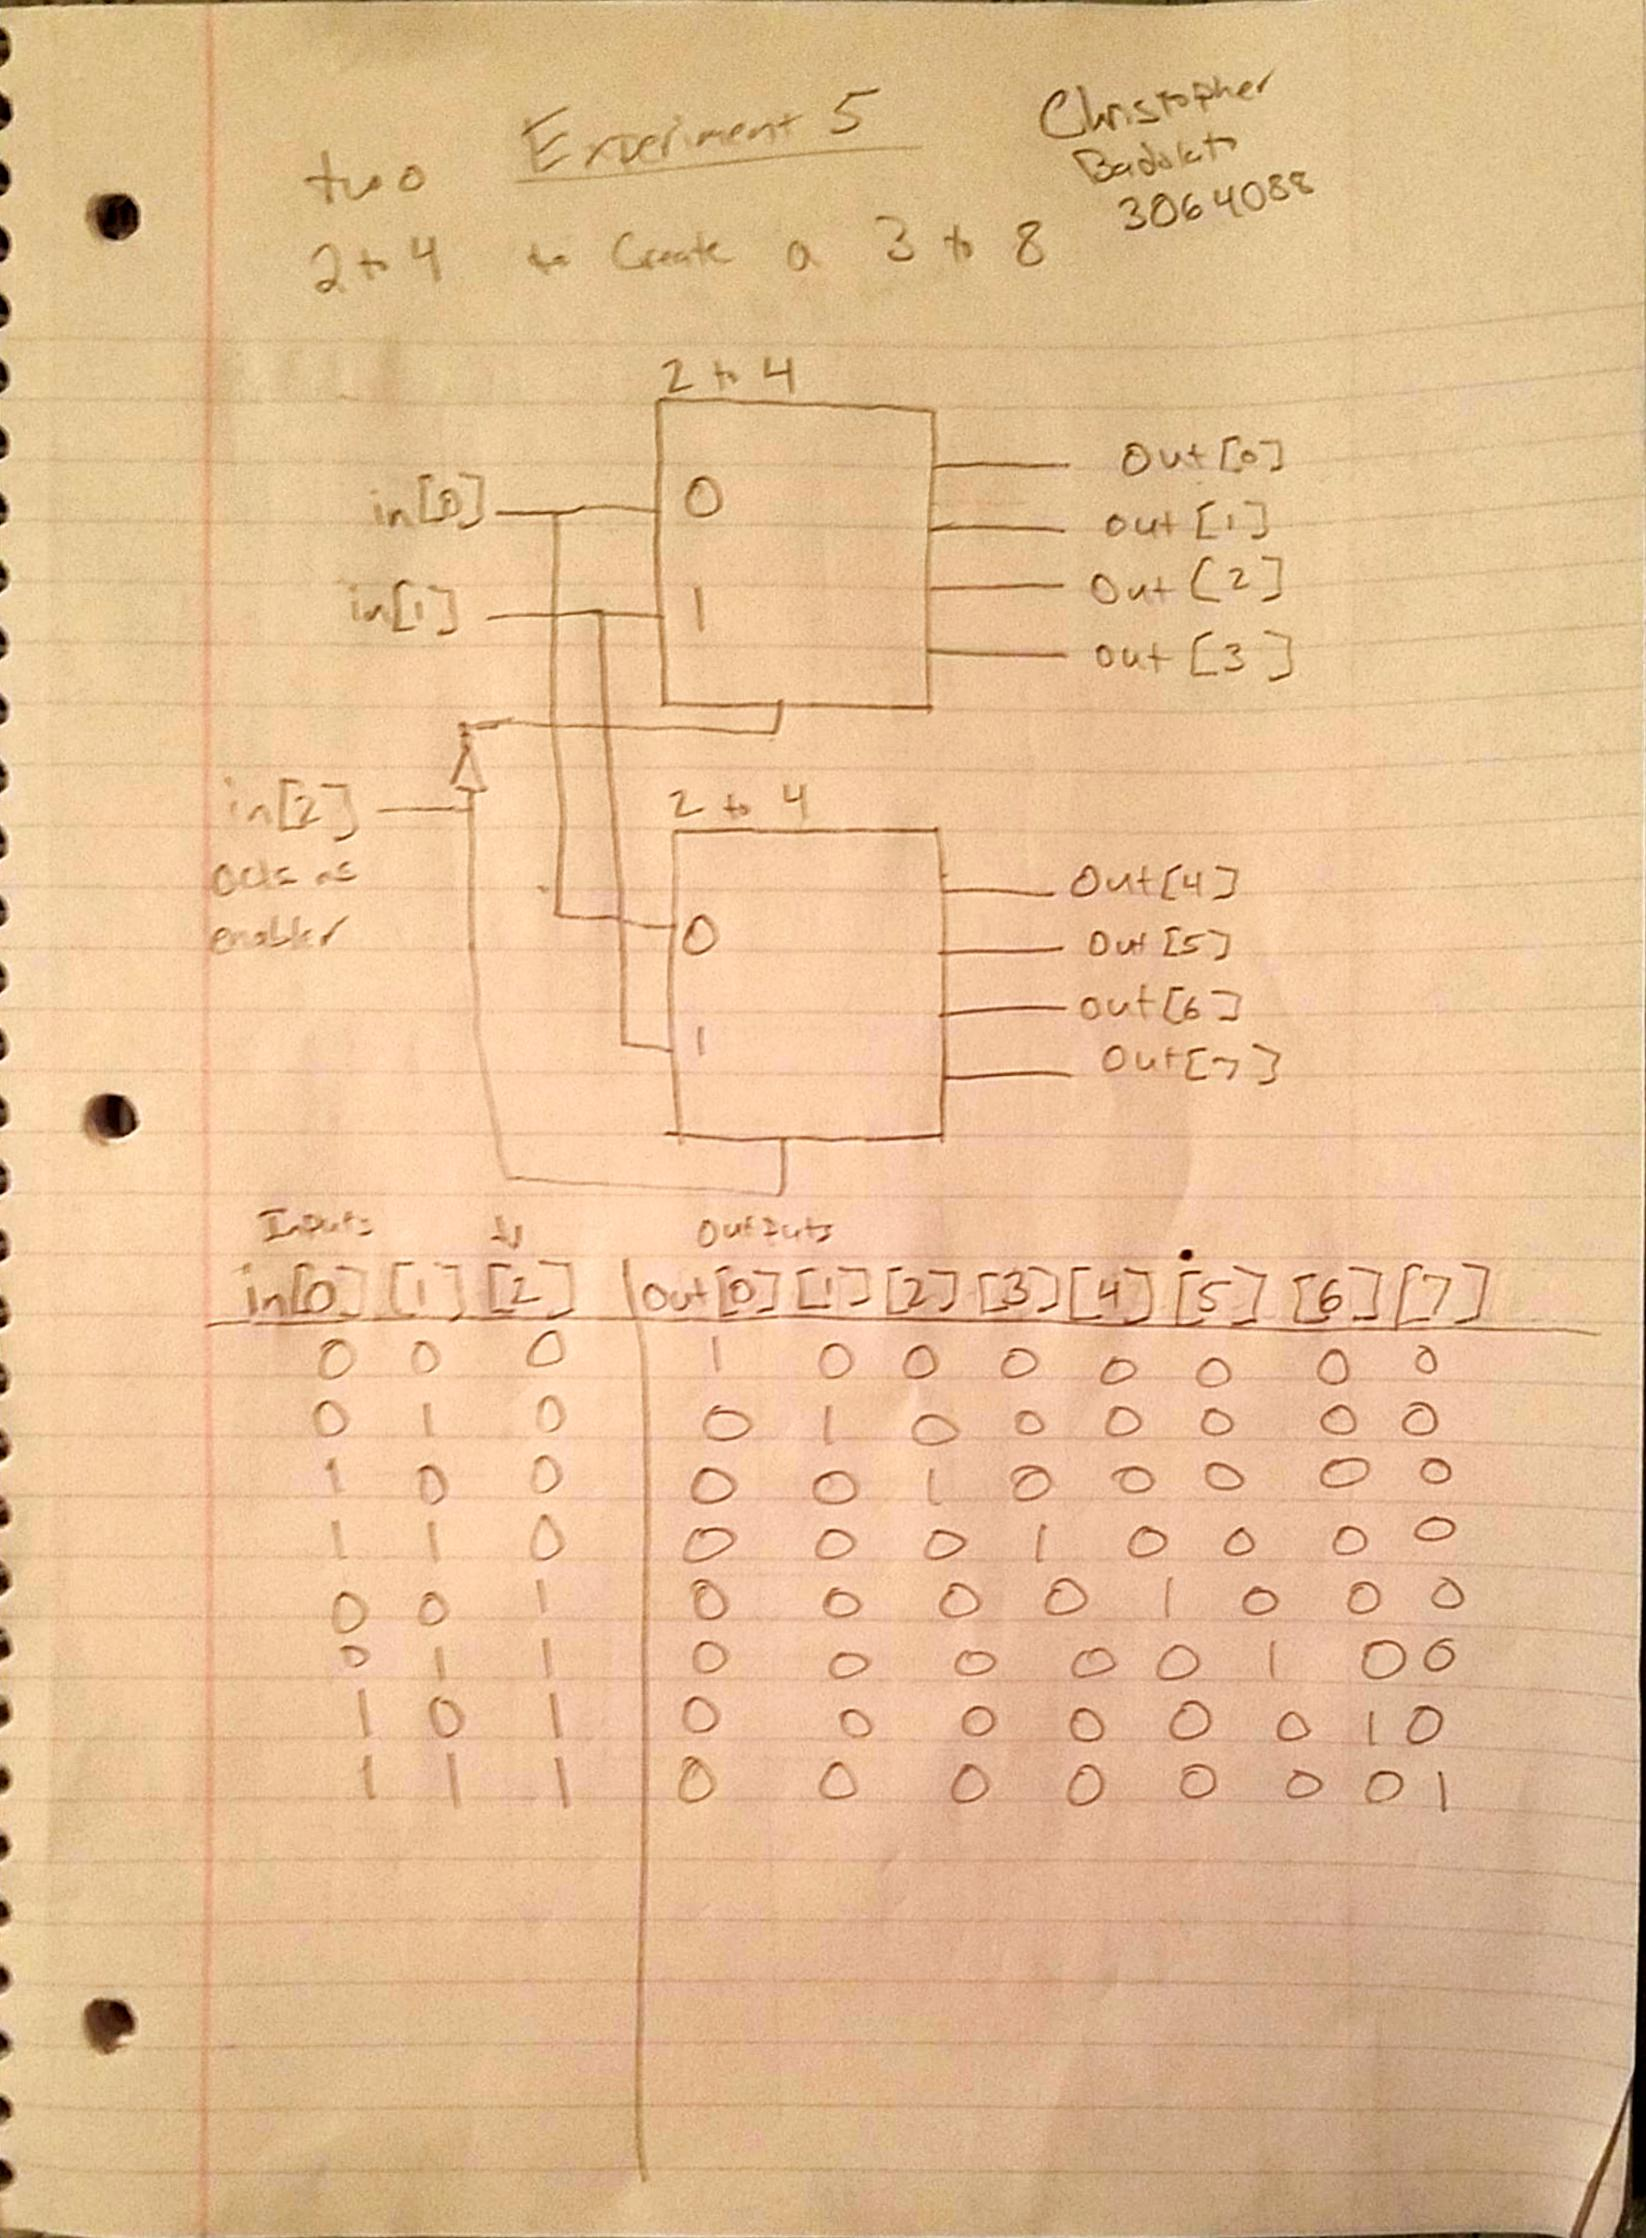 Experiment 5
Christopher
Badolato
3064088
two
2 to 4 to Create a 3 to 8
2 to 4
in[0] 0 Out[0]
out [1]
in[1] 1 Out [2]
out [3]
in[2]
acts as
enabler
2 to 4
0 Out[4]
Out [5]
1 out[6]
Out[7]
Inputs Outputs
in[0] [1] [2] Out[0] [1] [2] [3] [4] [5] [6] [7]
0 0 0 1 0 0 0 0 0 0 0
0 1 0 0 1 0 0 0 0 0 0
1 0 0 0 0 1 0 0 0 0 0
1 1 0 0 0 0 1 0 0 0 0
0 0 1 0 0 0 0 1 0 0 0
0 1 1 0 0 0 0 0 1 0 0
1 0 1 0 0 0 0 0 0 1 0
1 1 1 0 0 0 0 0 0 0 1